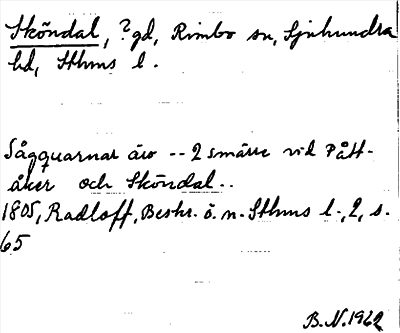 Sköndal, ?gd, Rimbo sn, Sjuhundra
hd, Sthms l.
Sågquarnar äro -- 2 smärre vid Pått-
åker och Sköndal..
1805, Radloff, Beskr. ö. n. Sthms l., 2, s.
65
B.N. 1962